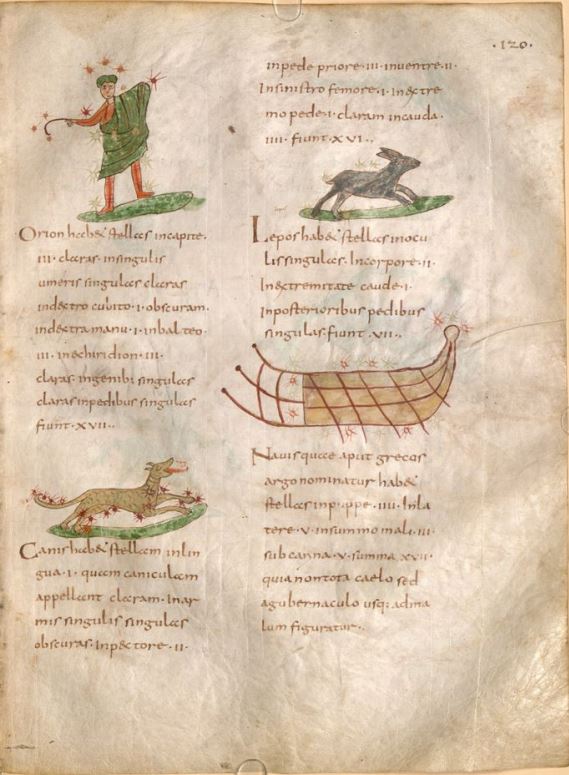 ·120·
Orion habet stellas in capite·
iii· claras· in singulis
umeris singulas claras
in dextro cubito· i· obscuram·
in dextra manu· i· in balteo·
iii· in echiridion· iii·
claras· in genibus singulas
claras in pedibus singulas
fiunt· xvii··
Canis habet stellam in lin
gua· i· quam caniculam
appellant claram· In ar
mis singulis singulas
obscuras· In pectore· ii·
in pede priore· iii· in ventre· ii·
In sinistro femore· i· In extre
mo pede· i· claram in cauda·
iiii· fiunt· xvi··
Lepos habet stellas in ocu
lis singulas· In corpore· ii·
In extremitate caude· i·
In posterioribus pedibus
singulas· fiunt· vii··
Navis quae aput grecos
argo nominatur habet
stellas in p·ppe· iiii· In la
tere· v· in summo mali· iii·
sub carina· v· summa xvii·
quia non tota caelo sed
a gubernaculo usq; ad ma
lum figuratur··